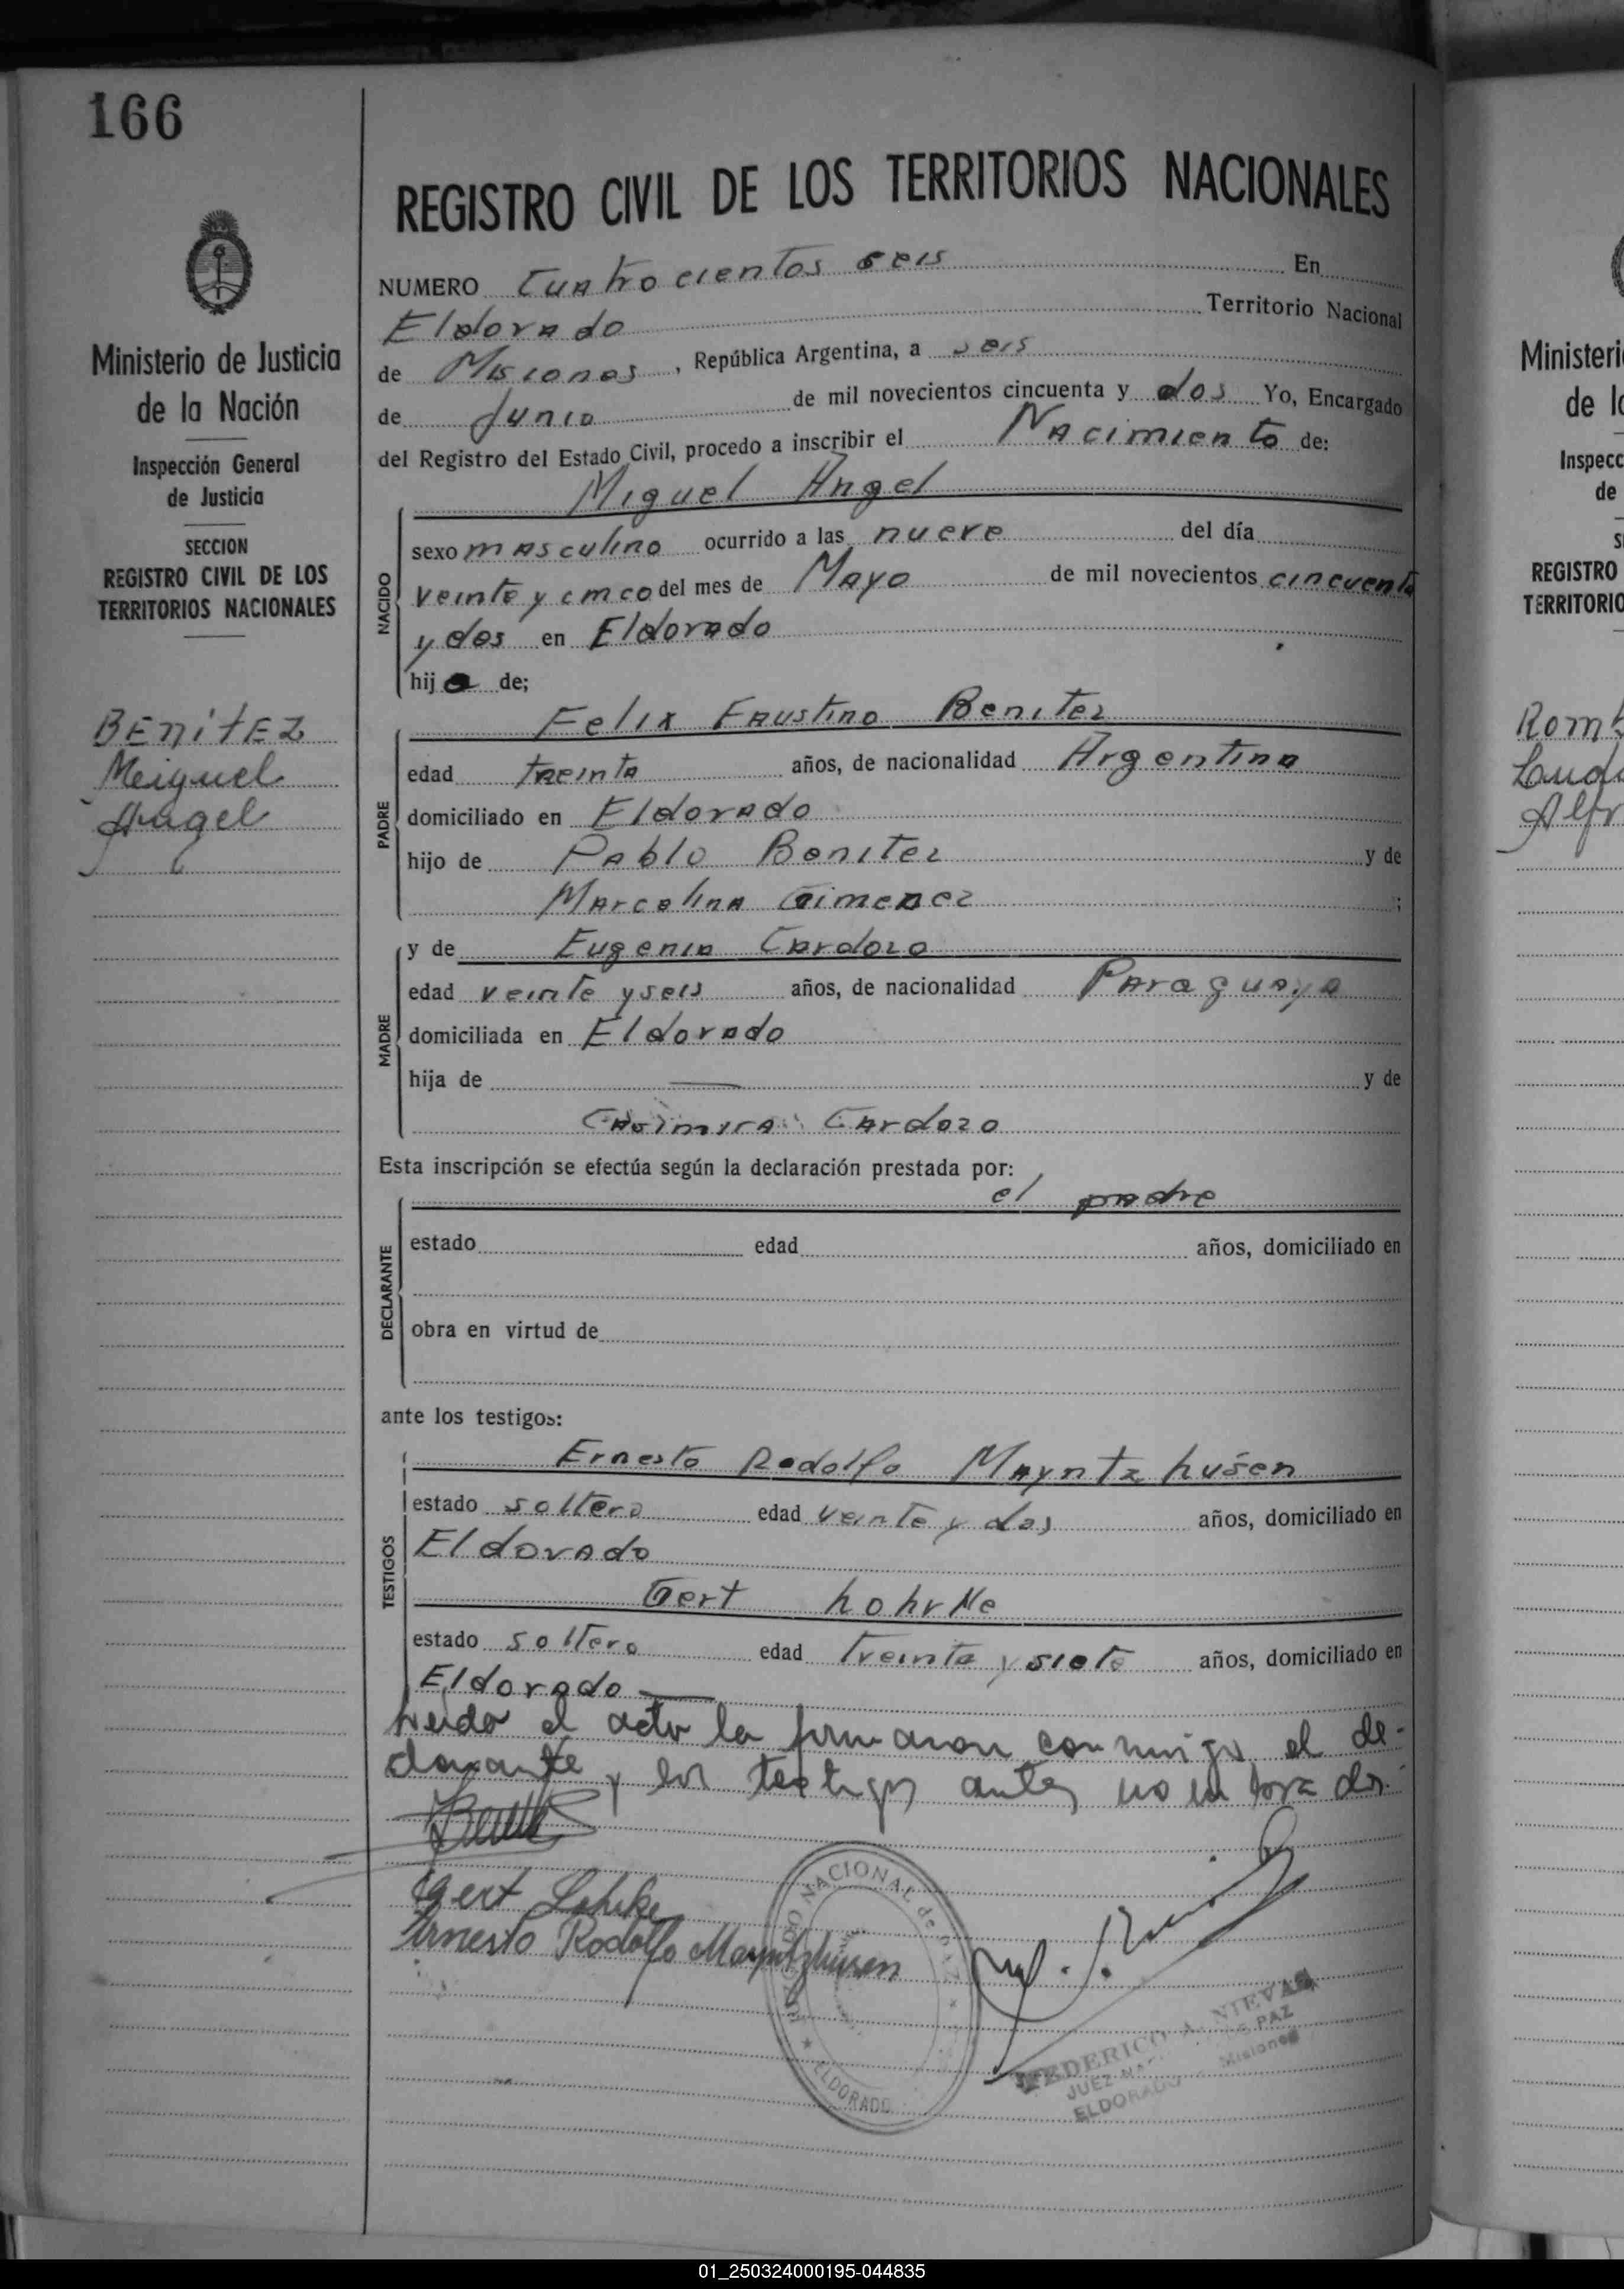 166
Ministerio de Justicia
de la Nación
Inspección General
de Justicia
SECCION
REGISTRO CIVIL DE LOS
TERRITORIOS NACIONALES
BENiTEZ
Meiguel
Angel
REGISTRO CIVIL DE LOS TERRITORIOS NACIONALES
NUMERO Cuatrocientos seis En
Eldorado Territorio Nacional
de Misiones, República Argentina, a seis
de Junio de mil novecientos cincuenta y dos Yo, Encargado
del Registro del Estado Civil, procedo a inscribir el Nacimiento de:
Miguel Angel
NACIDO
sexo masculino ocurrido a las nueve del día
veinte y cinco del mes de Mayo de mil novecientos cincuenta
y dos en Eldorado
hijo de;
Felix Faustino Benitez
PADRE
edad treinta años, de nacionalidad Argentina
domiciliado en Eldorado
hijo de Pablo Benitez y de
Marcelina Gimenez ;
MADRE
y de Eugenia Cardozo
edad veinte y seis años, de nacionalidad Paraguaya
domiciliada en Eldorado
hija de — y de
Casimira Cardozo
Esta inscripción se efectúa según la declaración prestada por:
el padre
DECLARANTE
estado edad años, domiciliado en
obra en virtud de
ante los testigos:
TESTIGOS
Ernesto Rodolfo Mayntzhusen
estado soltero edad veinte y dos años, domiciliado en
Eldorado
Gert Lohrke
estado soltero edad treinta y siete años, domiciliado en
Eldorado —
Leida el acta la firmaron conmigo el de-
clarante y los testigos antes nombrados.
Gert Lohrke
Ernesto Rodolfo Mayntzhusen
JUZGADO NACIONAL de PAZ
★ ELDORADO
FEDERICO A. NIEVAS
JUEZ DE PAZ
ELDORADO Misiones
Ministeri
de l
Inspecc
de
S
REGISTRO
TERRITORIO
Rom
Alfr
01_250324000195-044835